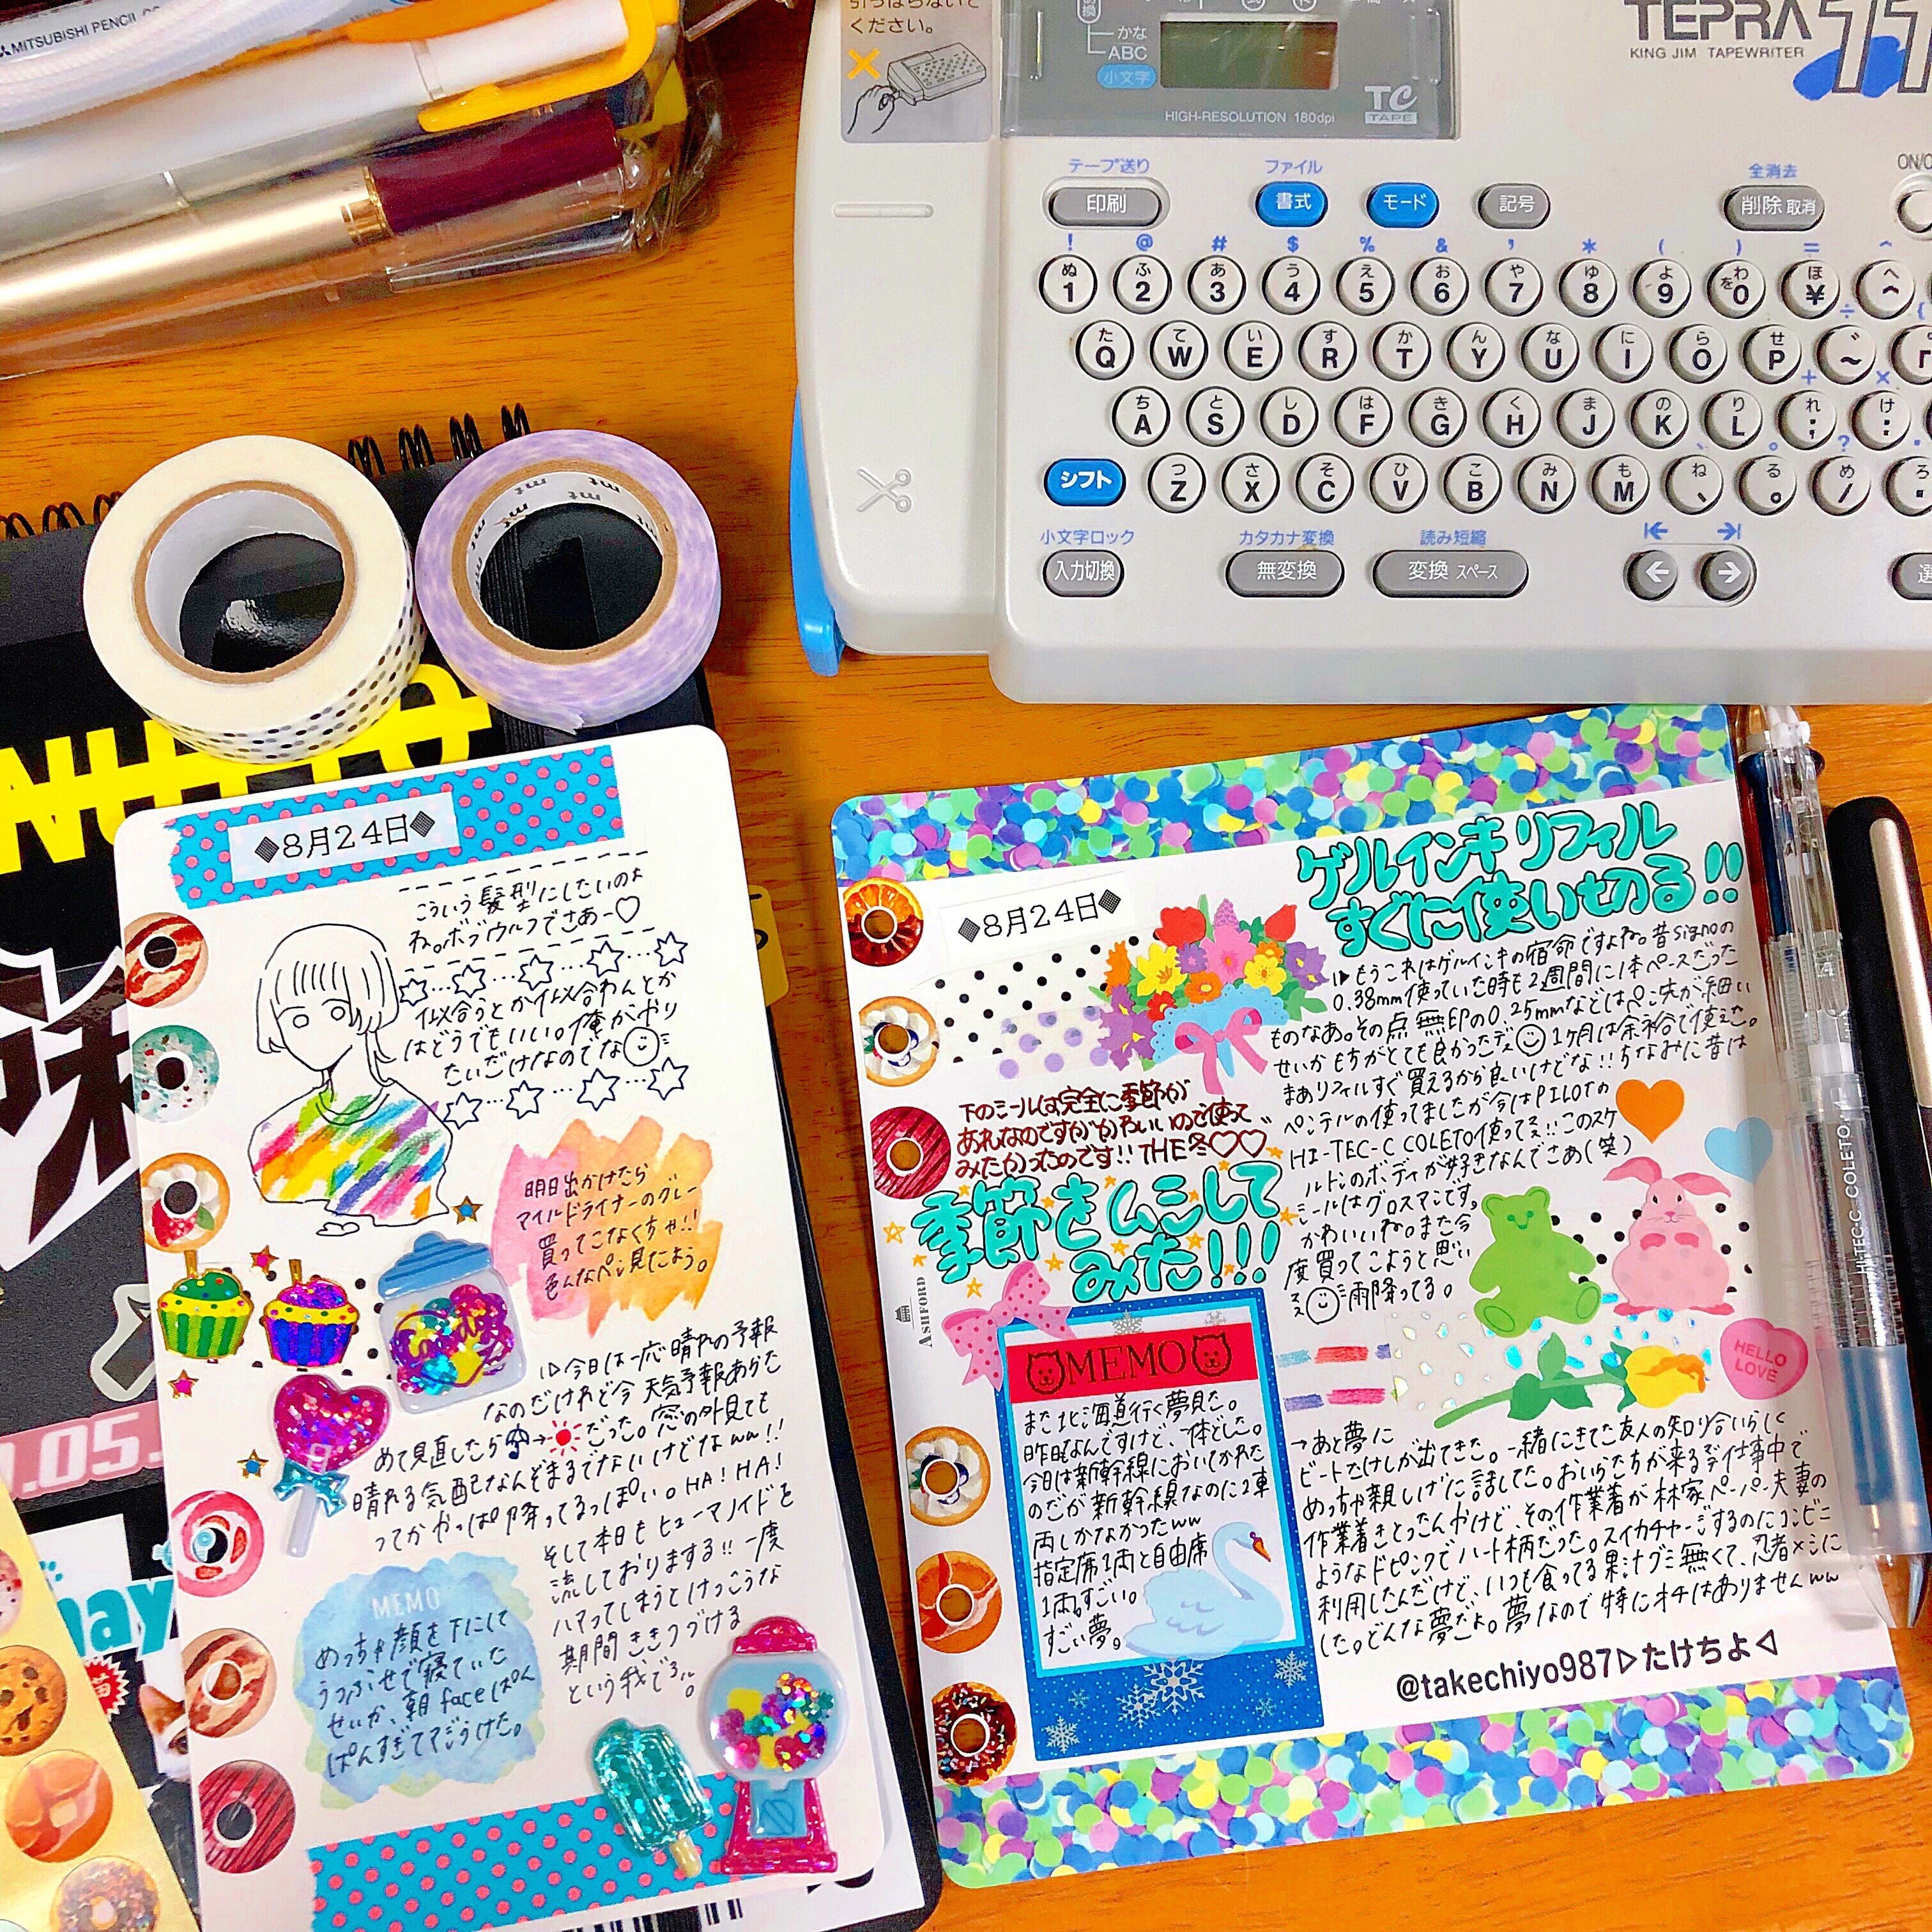 MITSUBISHI PENCIL CO
引っぱらないで
ください。
かな
ABC
小文字
HIGH-RESOLUTION 180dpi
TC
TAPE
TEPRA
11
KING JIM TAPEWRITER
テープ送り
ファイル
全消去
印刷
書式
モード
記号
削除 取消
! @ # $ % & ' * ( ) = ^
ぬ ふ あ う え お や ゆ よ わ を ほ へ
1 2 3 4 5 6 7 8 9 0 ¥ ^
た て い す か ん な に ら せ ゛
Q W E R T Y U I O P ~
ち と し は き く ま の り れ け
A S D F G H J K L ; :
シフト
つ さ そ ひ こ み も ね る め ろ
Z X C V B N M 、 。 /
小文字ロック
カタカナ変換
読み短縮
入力切換
無変換
変換 スペース
mt mt mt
◆8月24日◆
こういう髪型にしたいのよ
ね。ボブウルフでさあー♡
似合うとか似合わんとか
はどうでもいい。俺がやり
たいだけなのでな
明日出かけたら
マイルドライナーのグレー
買ってこなくちゃ!!
色んなペン見たよう。
今日は一応晴れの予報
なのだけれど今 天気予報あらた
めて見直したら☂→☀だった。窓の外見ても
晴れる気配なんぞまるでないけどなww!!
ってかやっぱ降ってるっぽい。HA!HA!
そして本日もヒューマノイドを
流しておりまする!! 一度
ハマってしまうとけっこうな
期間ききつづける
という我でろ。
MEMO
めっちゃ顔を下にして
うつぶせで寝ていた
せいか、朝faceぱん
ぱんすぎてマジうけた。
◆8月24日◆
ゲルインキリフィル
すぐに使い切る!!
もうこれはゲルインキの宿命ですよね。昔signoの
0.38mm使っていた時も2週間に1本ペースだった
ものなあ。その点 無印の0.25mmなどはペン先が細い
せいかもちがとても良かったデス 1ヶ月は余裕で使えた。
まありフィルすぐ買えるから良いけどな!! ちなみに昔は
ペンテルの使ってましたが今はPILOTの
HI-TEC-C COLETO使ってマス!! このスケ
ルトンのボディが好きなんでさあ(笑)
シールはグロスマンです。
かわいいね。また今
度買ってこようと思い
マス 雨降ってる。
下のシールは完全に季節が
あれなのですがかわいいので使って
みたかったのです!! THE冬♡♡
季節をムシして
みた!!!
ASHFORD
MEMO
また北海道行く夢見た。
昨日なんですけど、一体どした。
今日は新幹線においてかれた
のだが新幹線なのに2車
両しかなかったww
指定席1両と自由席
1両。すごい。
すごい夢。
HELLO
LOVE
→あと夢に
ビートたけしが出てきた。一緒にきてた友人の知り合いらしく
めっちゃ親しげに話してた。おいらたちが来るまで仕事中で
作業着きとったんやけど、その作業着が林家ペーパー夫妻の
ようなドピンクでハート柄だった。スイカチャージするのにコンビニ
利用したんだけど、いつも食ってる果汁グミ無くて、忍者メシに
した。どんな夢だよ。夢なので特にオチはありませんww
@takechiyo987▷たけちよ◁
HI-TEC-C COLETO
.05.